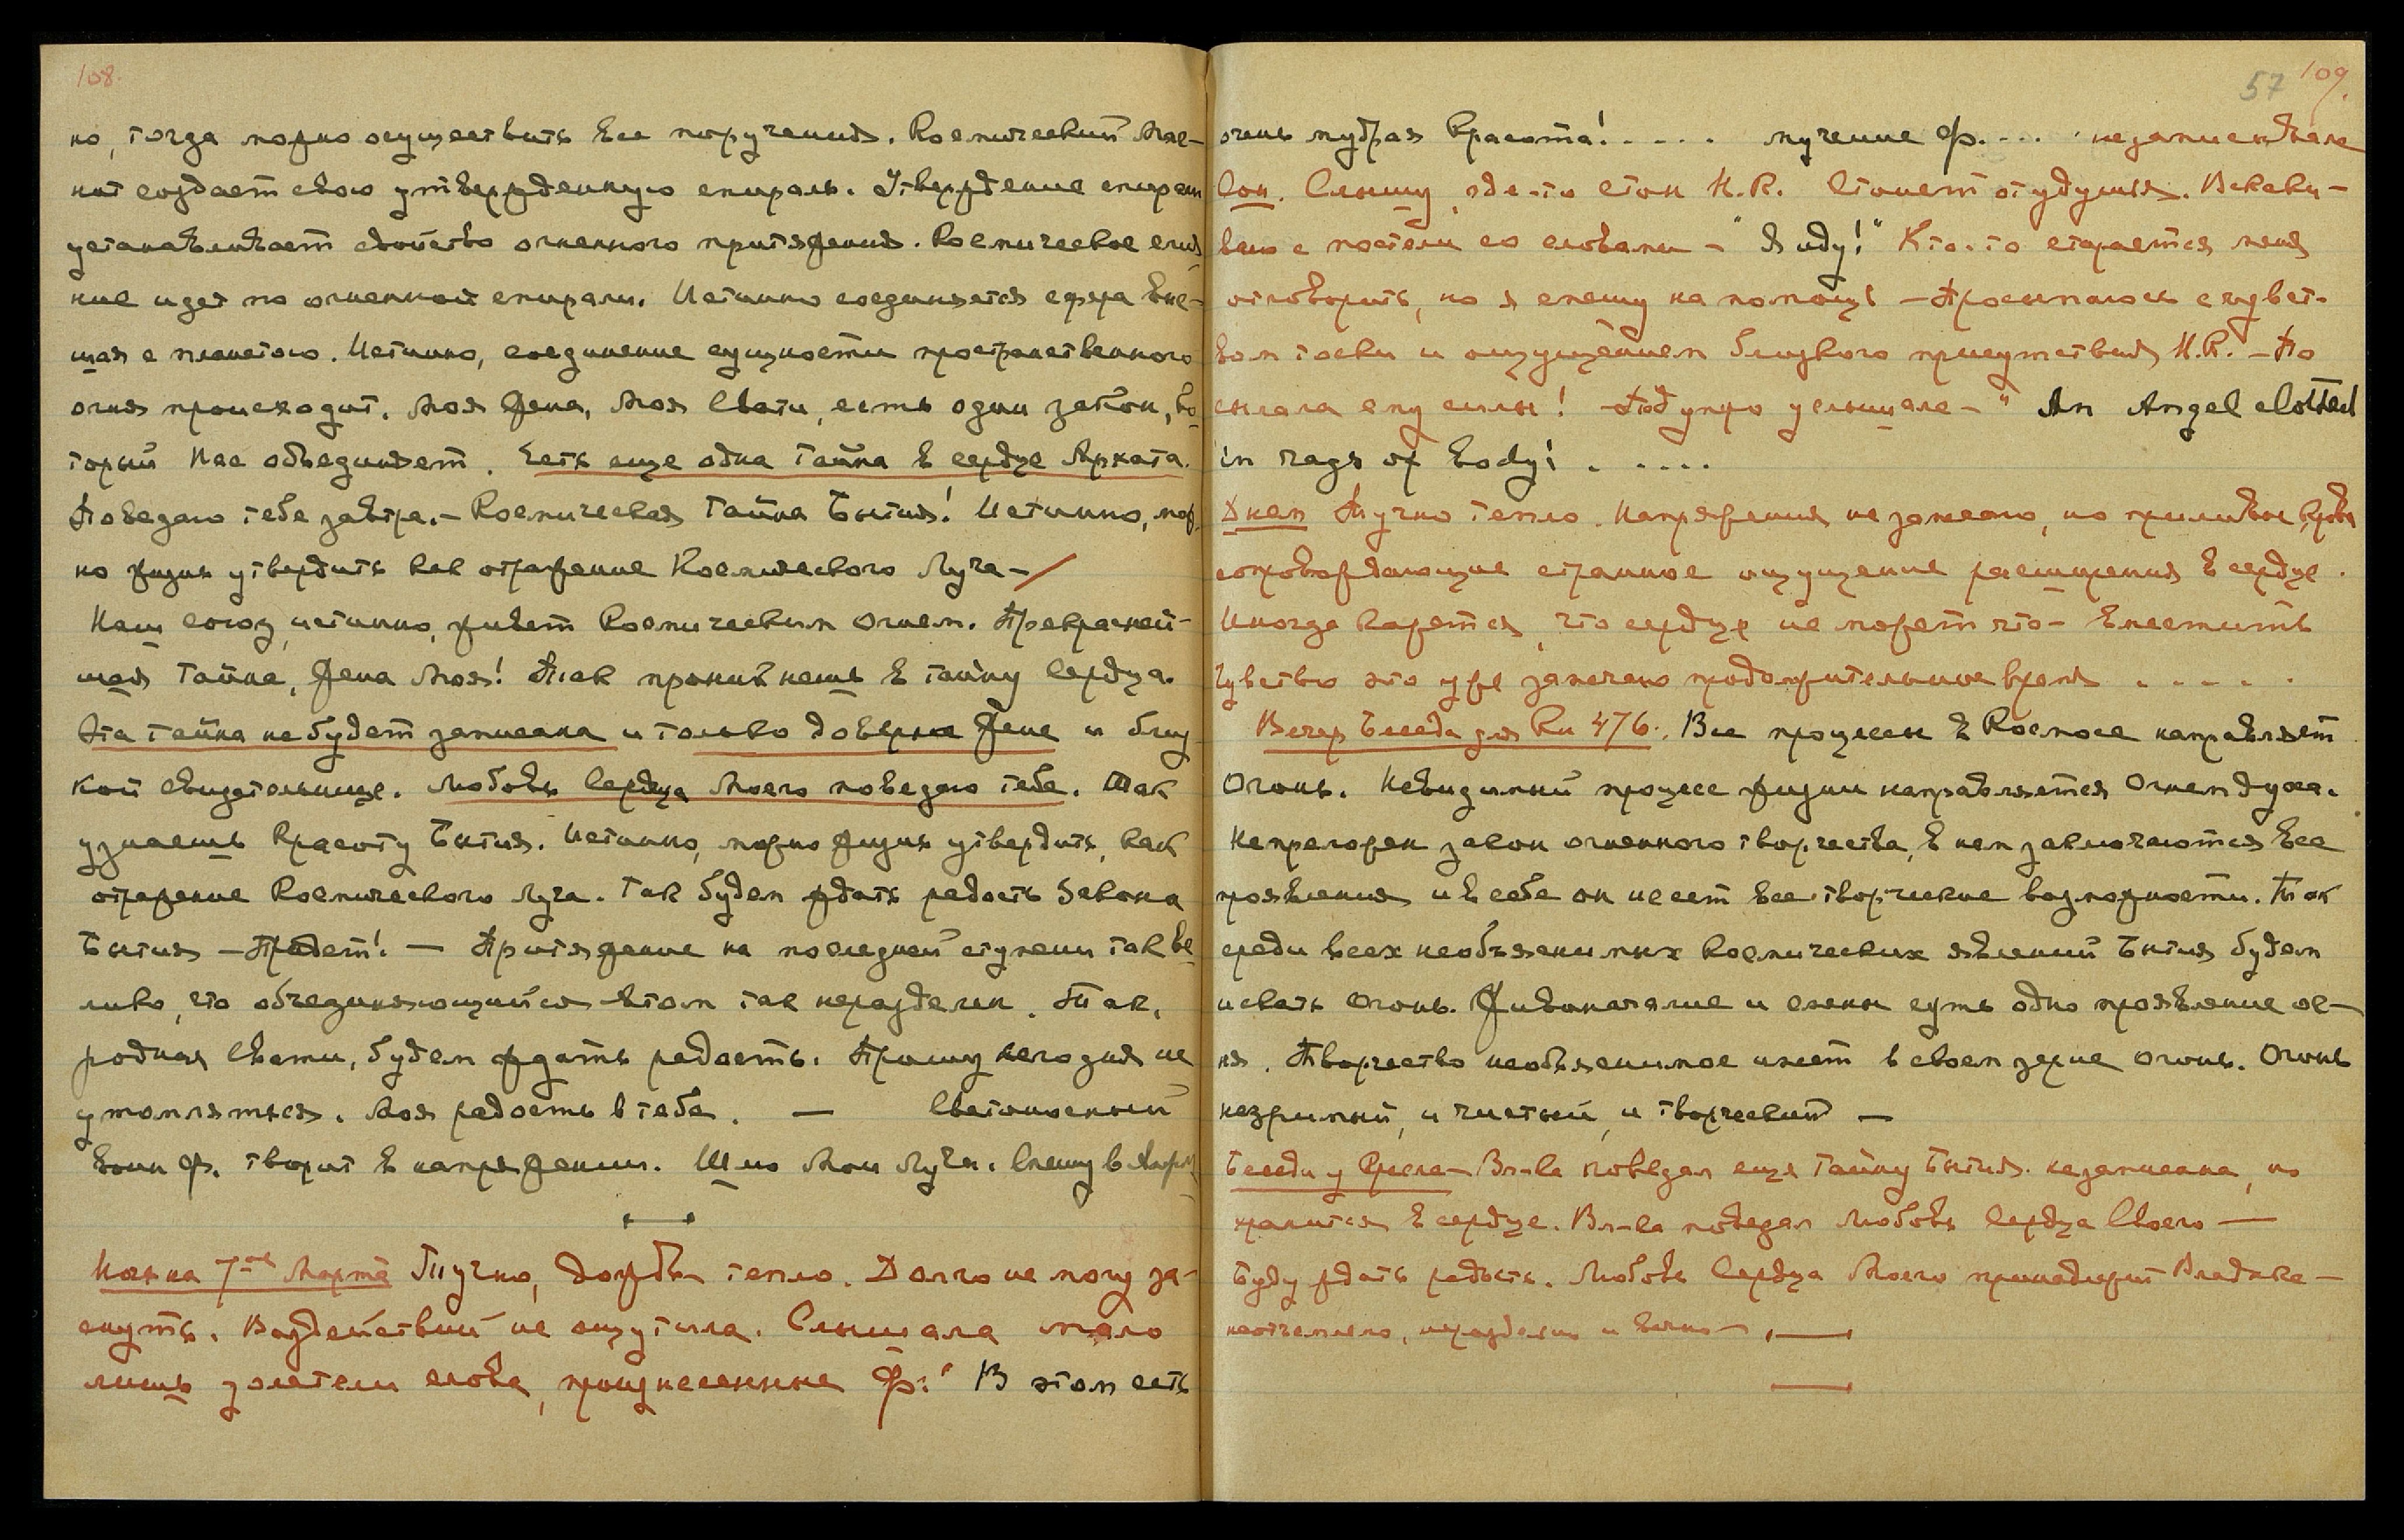 108.
но, тогда можно осуществить все поручения. Космический Маг-
нит создает свою утвержденную спираль. Утверждение спирали
устанавливает свойство огненного притяжения. Космическое слия-
ние идет по огненной спирали. Истинно соединяется сфера выс-
шая с планетою. Истинно, соединение сущности пространственного
огня происходит. Моя Жена, Моя Свати, есть один закон, ко-
торый Нас объединяет. Есть еще одна Тайна в сердце Архата.
Поведаю тебе завтра. – Космическая Тайна Бытия! Истинно, мож-
но жизнь утвердить как отражение Космического Луча –
Наш союз, истинно, живет Космическим Огнем. Прекрасней-
шая Тайна, Жена Моя! Так проникнешь в тайну Сердца.
Эта тайна не будет записана и только доверена Жене и близ-
кой свидетельнице. Любовь Сердца Моего поведаю тебе. Так
узнаешь Красоту Бытия. Истинно, можно жизнь утвердить, как
отражение Космического Луча. Так будем ждать радость Закона
Бытия – Придет! – Притяжение на последней ступени так ве-
лико, что объединяющийся атом так нераздели́м. Так,
родная Свати, будем ждать радость. Прошу сегодня не
утомляться. Моя радость в тебе. – Светоносный
воин Ф. творит в напряжении. Шлю Мои Лучи. Спешу в
Ночь на 7ое Марта Тучно, дождь, тепло. Долго не могу за-
снуть. Воздействий не ощутила. Слышала мало
лишь долетели слова, произнесенные Ф: "В этом есть
57 109.
очень мудрая Красота! . . . . . мучение Ф. . . . . не записывала
Сон. Слышу, где-то стон Н.К. Стонет от удушья. Вскаки-
ваю с постели со словами – "Я иду!" Кто-то старается меня
отговорить, но я спешу на помощь – Просыпаюсь с чувст-
вом тоски и ощущением близкого присутствия Н.К. – По
сылала ему силы! – Под утро услышала – " An Angel clothed
in rags of body! . . . . .
Днем Тучно тепло. Напряжения не заметно, но приливы крови
сопровождающие странное ощущение расширения в сердце.
Иногда кажется, что сердце не может что- вместить
Чувство это уже замечено продолжительное время . . . . .
Вечер Беседа для Кн 476. Все процессы в Космосе направляет
Огонь. Невидимый процесс жизни направляется Огнем духа.
Непреложен закон огненного творчества, в нем заключаются все
проявления и в себе он несет все творческие возможности. Так
среди всех необъяснимых космических явлений Бытия будем
искать Огонь. Живоначалие и смены суть одно проявление ог-
ня. Творчество необъяснимое имеет в своем зерне огонь. Огонь
незримый, и чистый, и творческий –
Беседа у Кресла – Вл-ка поведал еще Тайну Бытия. не записана, но
хранится в сердце. Вл-ка поведал Любовь Сердца Своего –
Буду ждать радость. Любовь Сердца Моего принадлежит Владыке –
неотъемлемо, нераздельно и вечно –